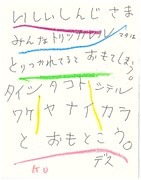 いしいしんじ さま
みんなトリツカレル マタは
とりつかれてると おもてしまう。
タイシタコト シテル
ワケ ヤナイ カラ
と おもとこう。
デス